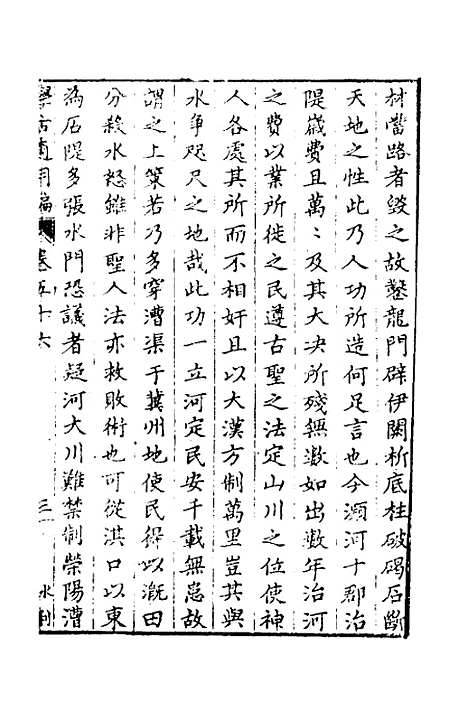 材當路者毀之故鑿龍門辟伊闕析底柱破碣石斷
天地之性此乃人功所造何足言也今瀕河十郡治
隄歲費且萬〻及其大决所殘無數如出數年治河
之費以業所徙之民遵古聖之法定山川之位使神
人各處其所而不相奸且以大漢方制萬里豈其與
水爭咫尺之地哉此功一立河定民安千載無患故
謂之上策若乃多穿漕渠于冀州地使民得以溉田
分殺水怒雖非聖人法亦救敗術也可從淇口以東
為石隄多張水門恐議者疑河大川難禁制榮陽漕
學古適用編 卷五十六 三 水利